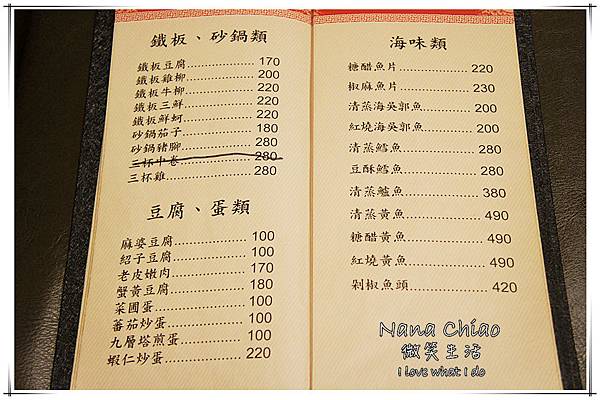 鐵板、砂鍋類
鐵板豆腐................ 170
鐵板雞柳................ 200
鐵板牛柳................ 220
鐵板三鮮................ 220
鐵板鮮蚵................ 220
砂鍋茄子................ 180
砂鍋豬腳................ 280
三杯中卷................ 280
三杯雞.................... 280
豆腐、蛋類
麻婆豆腐................ 100
紹子豆腐................ 100
老皮嫩肉................ 170
蟹黃豆腐................ 180
菜圃蛋.................... 100
蕃茄炒蛋................ 100
九層塔煎蛋............ 100
蝦仁炒蛋................ 220
海味類
糖醋魚片................ 220
椒麻魚片................ 230
清蒸海吳郭魚............ 200
紅燒海吳郭魚............ 200
清蒸鱈魚................ 280
豆酥鱈魚................ 280
清蒸鱸魚................ 380
清蒸黃魚................ 490
糖醋黃魚................ 490
紅燒黃魚................ 490
剁椒魚頭................ 420
Nana Chiao
微笑生活
I love what I do